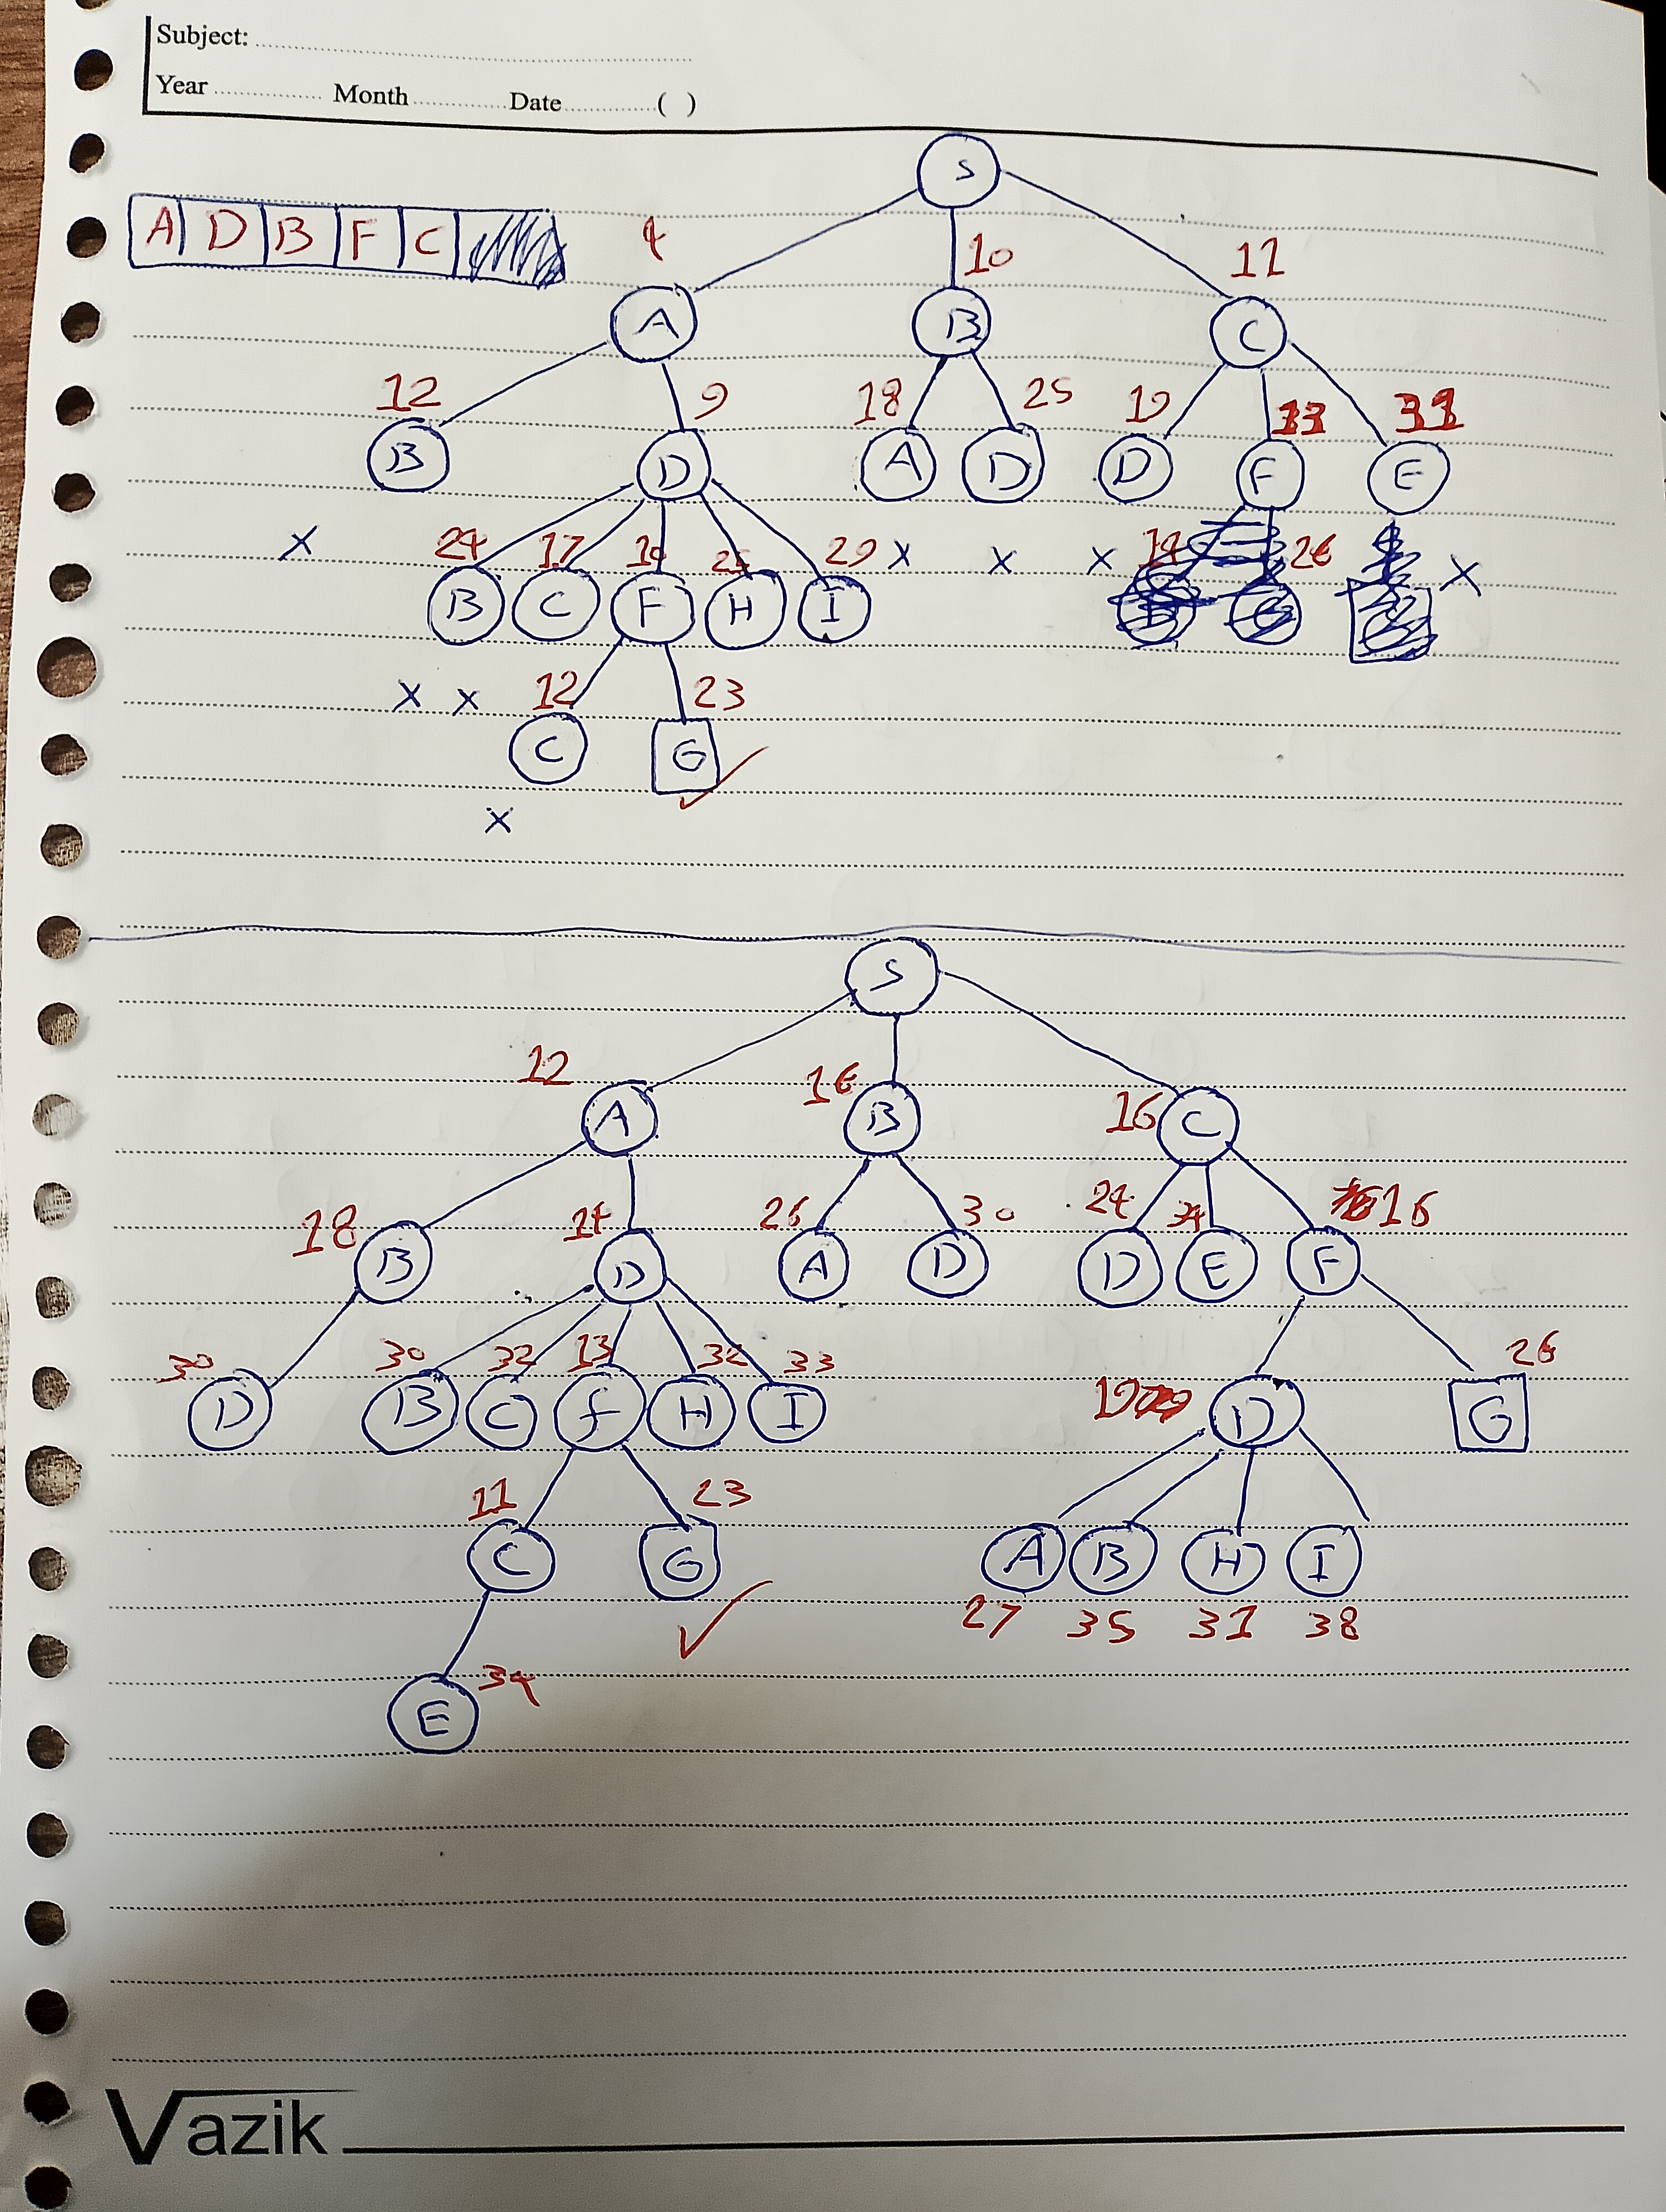 Subject:
Year Month Date ( )
S
A D B F C
4 10 11
A B C
12 9 18 25 19 31
B D A D D F E
x 24 17 29 x x x 26 x
B C F H I
x x 12 23
C G ✓
x
S
12 16 16
A B C
18 14 26 30 24 34 16
B D A D D E F
30 30 32 13 33 26
D B C F H I 19 D G
11 23
C G A B H I
✓ 27 35 31 38
34
E
Vazik